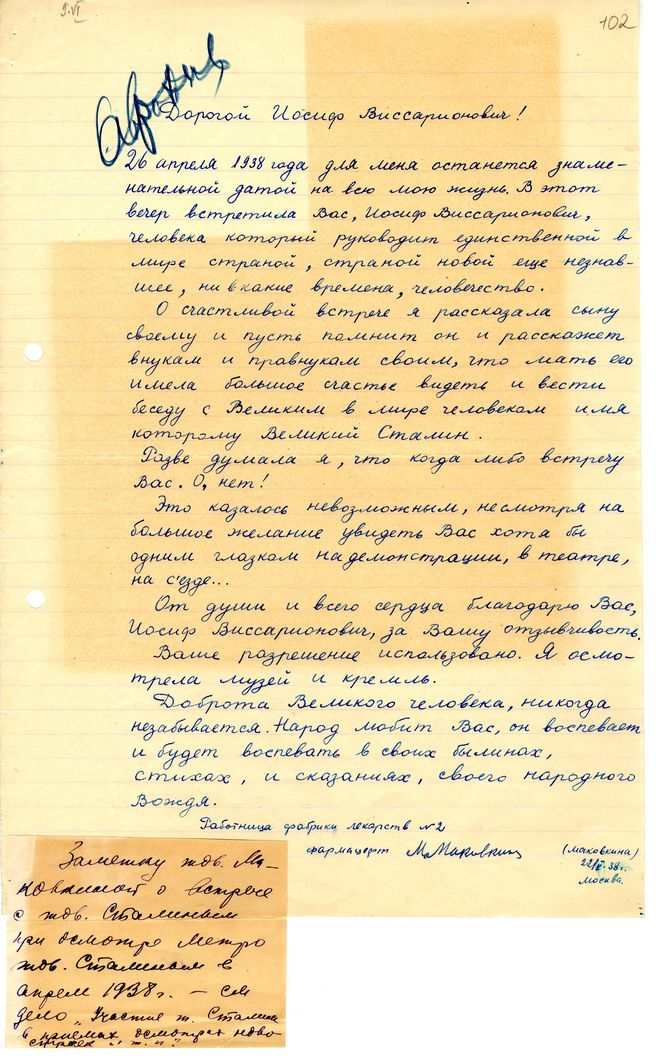 9.VI
102
Дорогой Иосиф Виссарионович!
26 апреля 1938 года для меня останется знаме-
нательной датой на всю мою жизнь. В этот
вечер встретила Вас, Иосиф Виссарионович,
человека который руководит единственной в
мире страной, страной новой еще незнав-
шее, ни в какие времена, человечество.
О счастливой встрече я рассказала сыну
своему и пусть помнит он и расскажет
внукам и правнукам своим, что мать его
имела большое счастье видеть и вести
беседу с Великим в мире человеком имя
которому Великий Сталин.
Разве думала я, что когда либо встречу
Вас. О, нет!
Это казалось невозможным, несмотря на
большое желание увидеть Вас хотя бы
одним глазком на демонстрации, в театре,
на с'езде...
От души и всего сердца благодарю Вас,
Иосиф Виссарионович, за Вашу отзывчивость.
Ваше разрешение использовано. Я осмо-
трела музей и кремль.
Доброта Великого человека, никогда
незабывается. Народ любит Вас, он воспевает
и будет воспевать в своих былинах,
стихах, и сказаниях, своего народного
Вождя.
Работница фабрики лекарств №2
фармацевт М.Маковкина (Маковкина)
38г.
Москва.
Заметку тов. Ма-
ковкиной о встрече
с тов. Сталиным
при осмотре метро
тов. Сталиным в
апреле 1938г. — см
дело „Участие т. Сталина
в приемах осмотрах ново
строек и т. п."